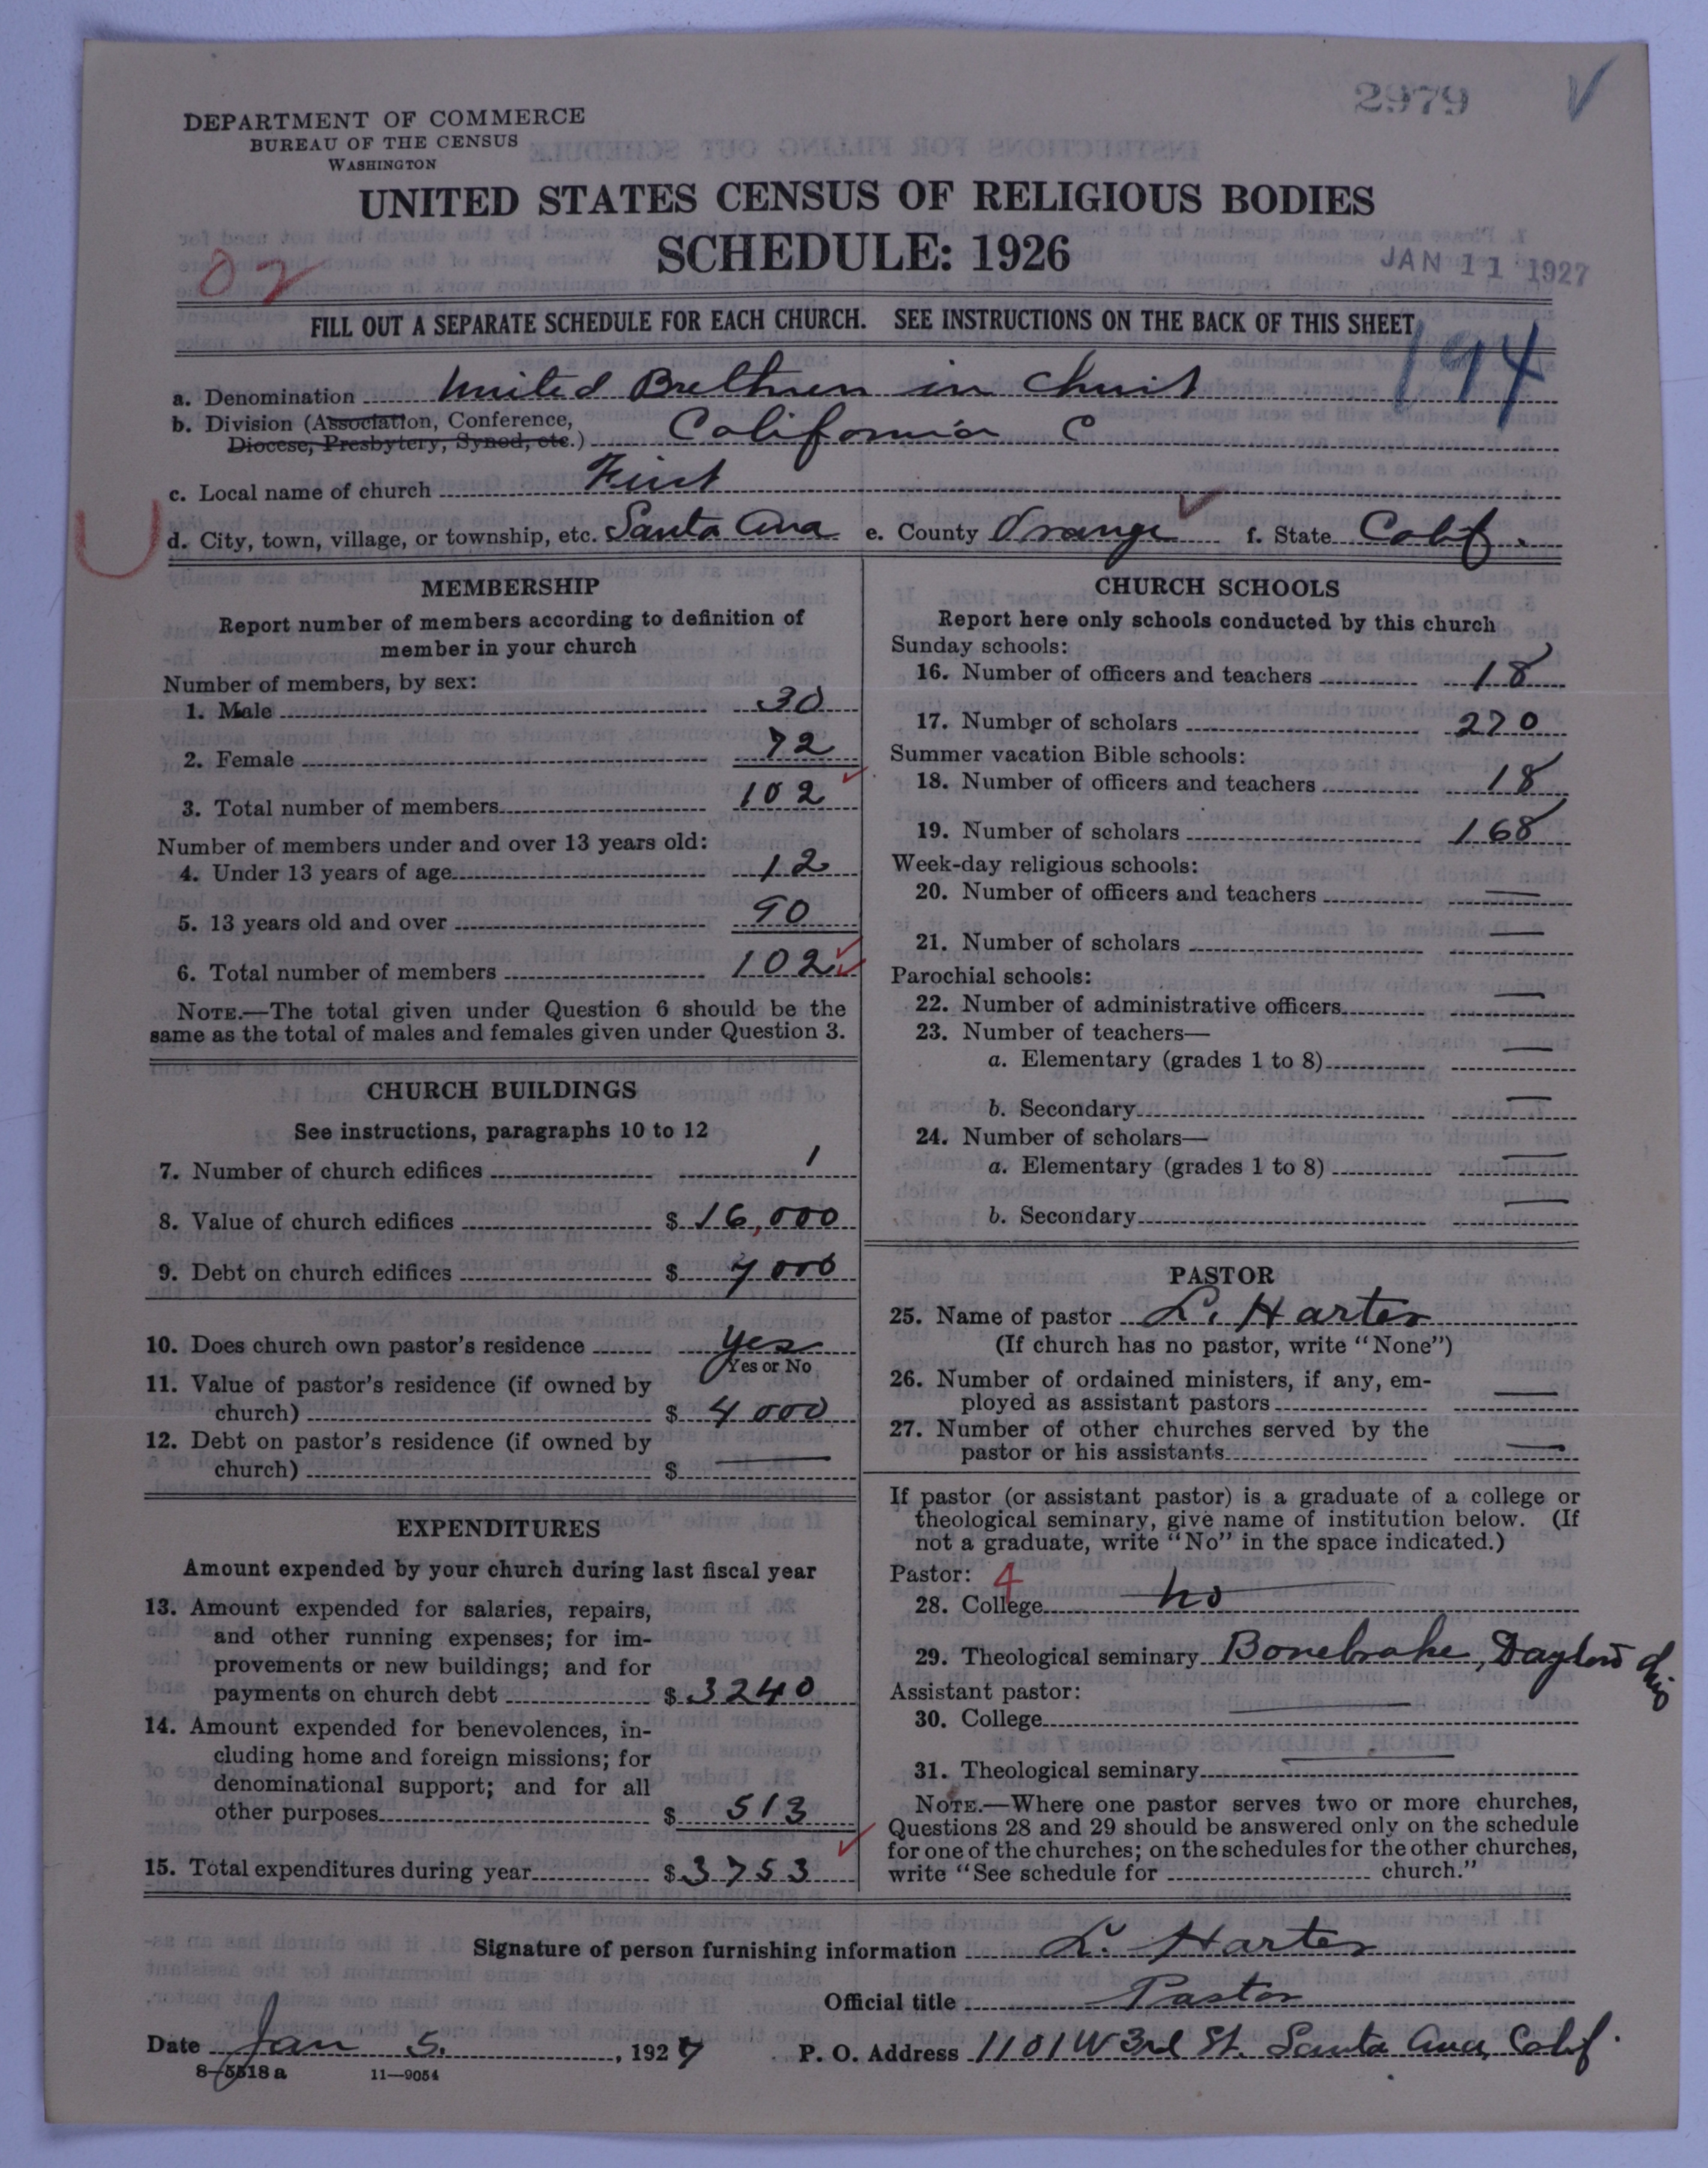 2979 V
DEPARTMENT OF COMMERCE
BUREAU OF THE CENSUS
WASHINGTON
UNITED STATES CENSUS OF RELIGIOUS BODIES
SCHEDULE: 1926
JAN 11 1927
FILL OUT A SEPARATE SCHEDULE FOR EACH CHURCH. SEE INSTRUCTIONS ON THE BACK OF THIS SHEET
194
a. Denomination United Brethren in Christ
b. Division (Association, Conference,
Diocese, Presbytery, Synod, etc.) California C
c. Local name of church First
d. City, town, village, or township, etc. Santa Ana e. County Orange f. State Calif.
MEMBERSHIP
Report number of members according to definition of
member in your church
Number of members, by sex:
1. Male 30
2. Female 72
3. Total number of members 102
Number of members under and over 13 years old:
4. Under 13 years of age 12
5. 13 years old and over 90
6. Total number of members 102
NOTE.—The total given under Question 6 should be the
same as the total of males and females given under Question 3.
CHURCH BUILDINGS
See instructions, paragraphs 10 to 12
7. Number of church edifices 1
8. Value of church edifices $ 16,000
9. Debt on church edifices $ 7 000
10. Does church own pastor's residence yes
Yes or No
11. Value of pastor's residence (if owned by
church) $ 4 000
12. Debt on pastor's residence (if owned by
church) $ —
EXPENDITURES
Amount expended by your church during last fiscal year
13. Amount expended for salaries, repairs,
and other running expenses; for im-
provements or new buildings; and for
payments on church debt $ 3240
14. Amount expended for benevolences, in-
cluding home and foreign missions; for
denominational support; and for all
other purposes $ 513
15. Total expenditures during year $ 3753
CHURCH SCHOOLS
Report here only schools conducted by this church
Sunday schools:
16. Number of officers and teachers 18
17. Number of scholars 270
Summer vacation Bible schools:
18. Number of officers and teachers 18
19. Number of scholars 168
Week-day religious schools:
20. Number of officers and teachers —
21. Number of scholars —
Parochial schools:
22. Number of administrative officers —
23. Number of teachers—
a. Elementary (grades 1 to 8) —
b. Secondary —
24. Number of scholars—
a. Elementary (grades 1 to 8) —
b. Secondary —
PASTOR
25. Name of pastor L. Harter
(If church has no pastor, write "None")
26. Number of ordained ministers, if any, em-
ployed as assistant pastors —
27. Number of other churches served by the
pastor or his assistants —
If pastor (or assistant pastor) is a graduate of a college or
theological seminary, give name of institution below. (If
not a graduate, write "No" in the space indicated.)
Pastor: 4
28. College no
29. Theological seminary Bonebrake, Dayton Ohio
Assistant pastor:
30. College —
31. Theological seminary —
NOTE.—Where one pastor serves two or more churches,
Questions 28 and 29 should be answered only on the schedule
for one of the churches; on the schedules for the other churches,
write "See schedule for church."
Signature of person furnishing information L. Harter
Official title Pastor
Date Jan 5, 1927 P. O. Address 1101 W 3rd St. Santa Ana, Calif.
8-5518 a 11—9054